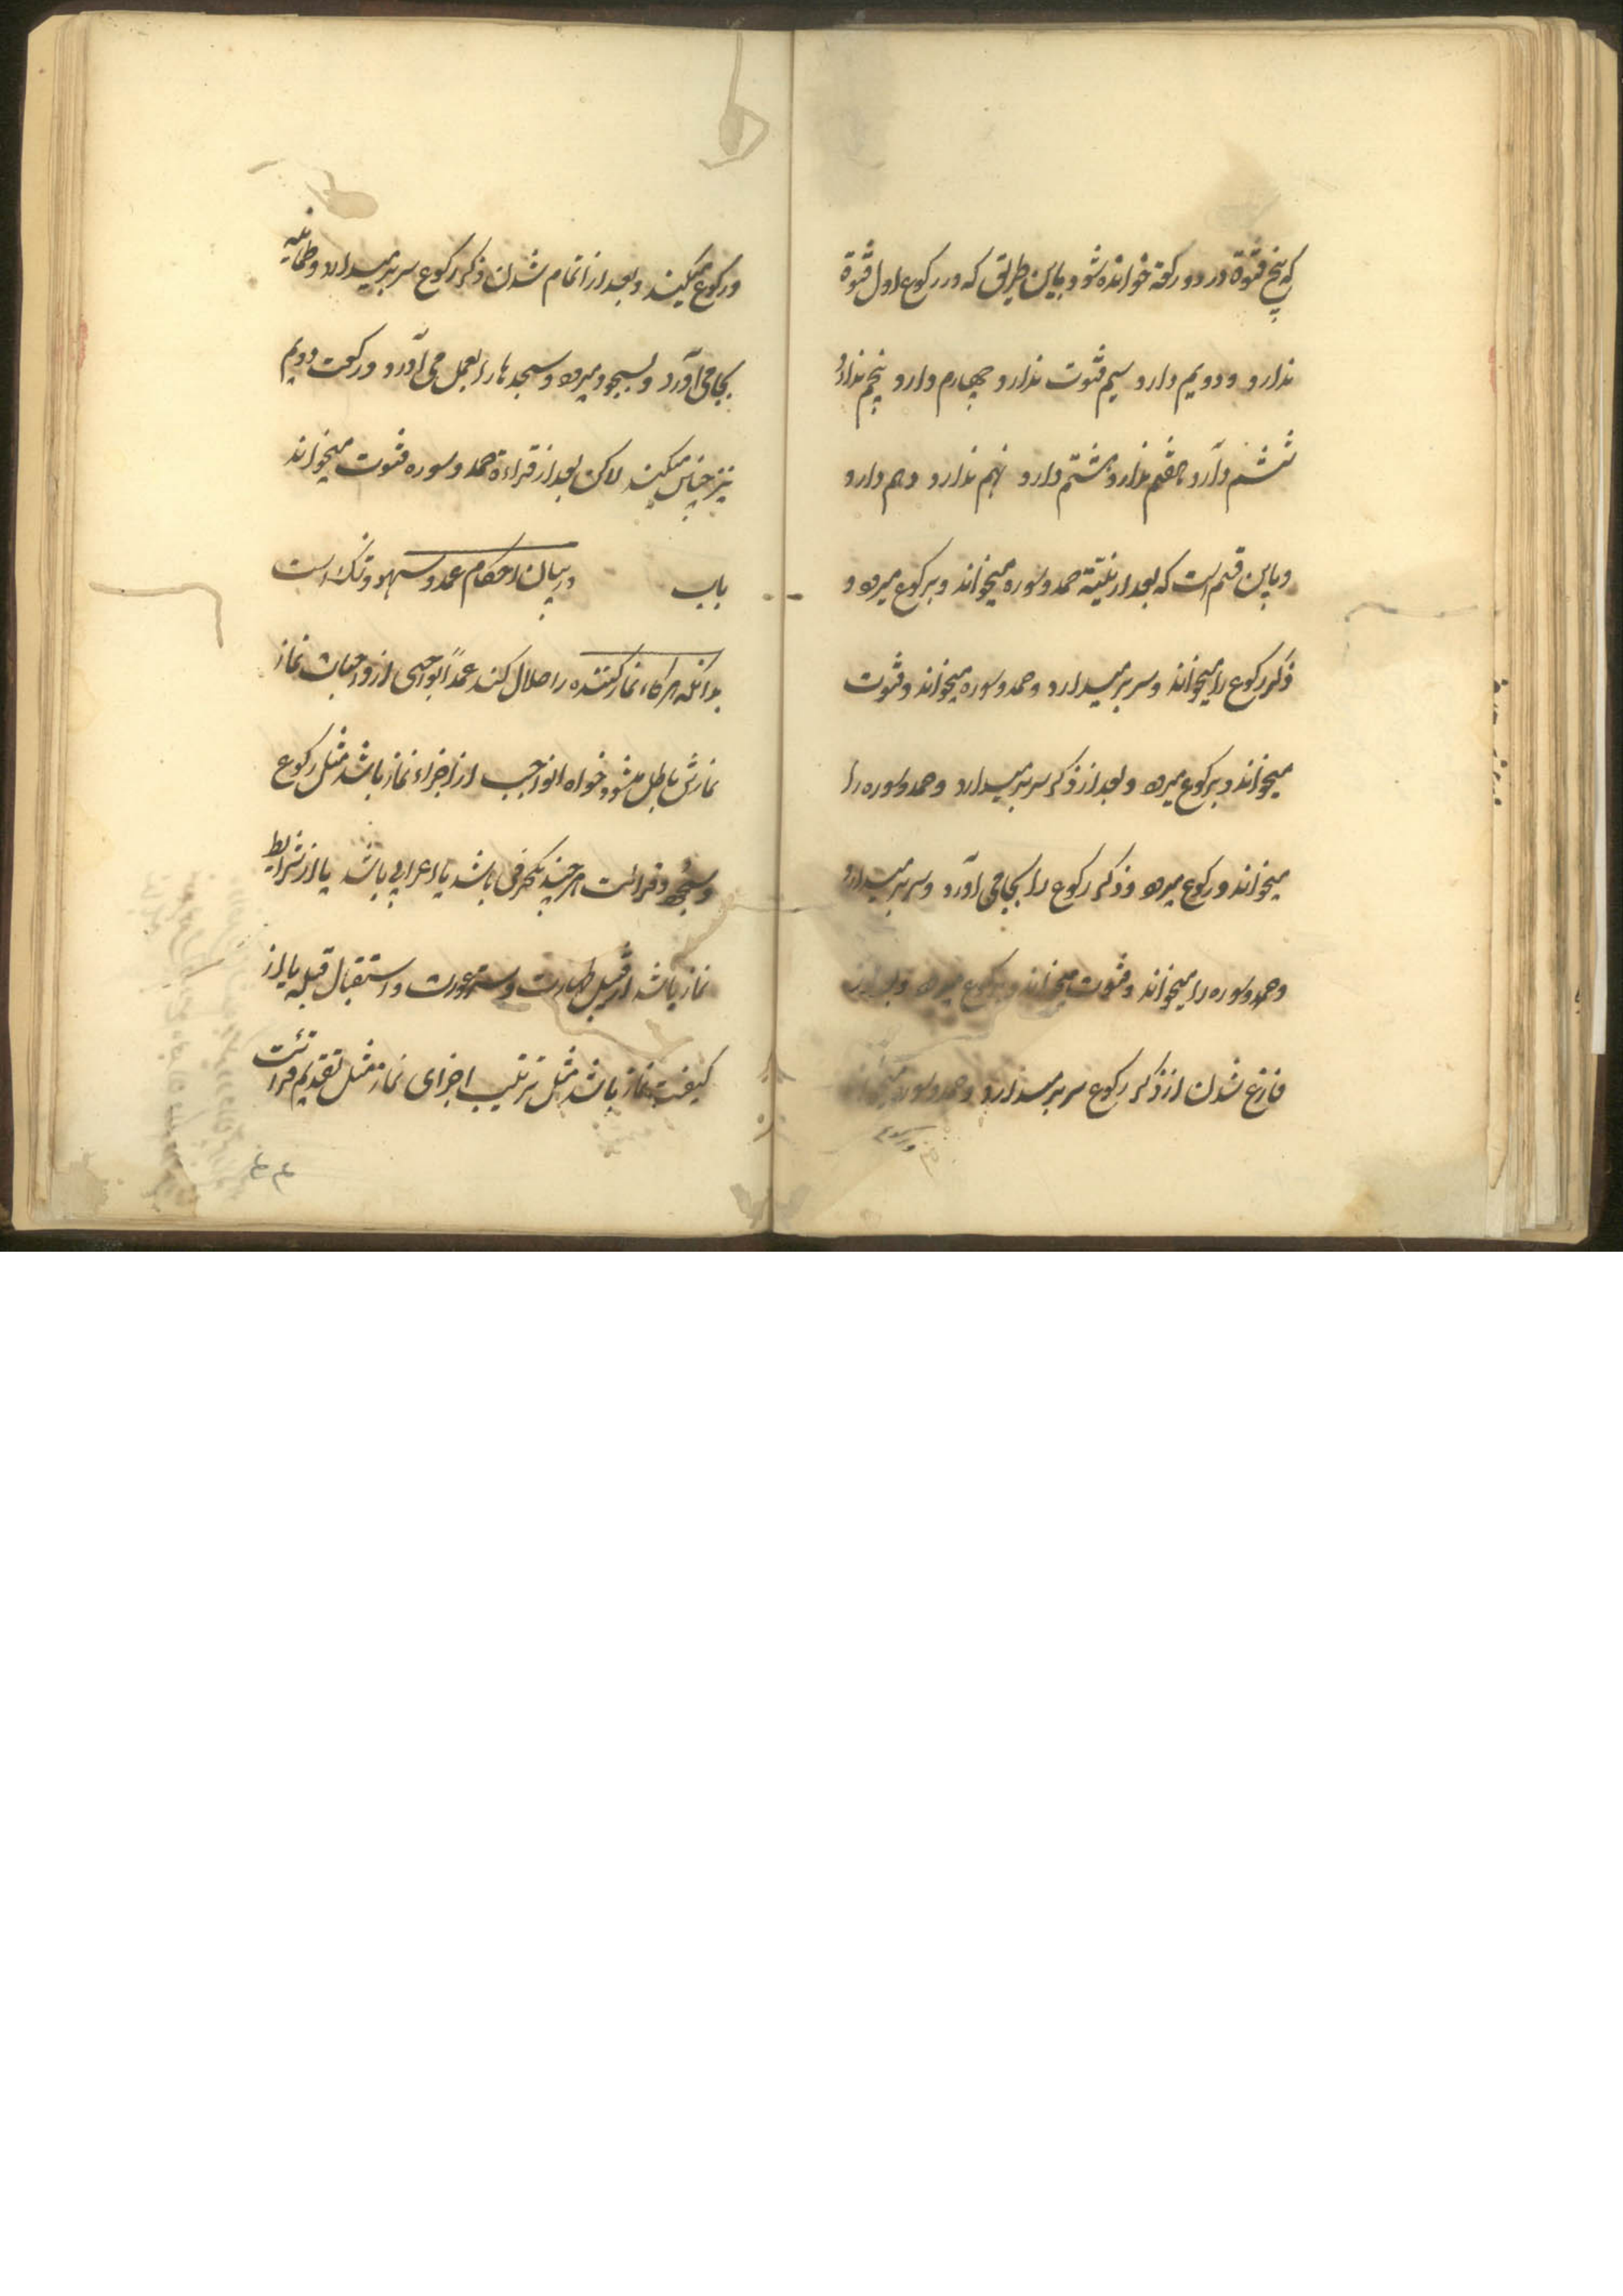 که پنج قنوة در دو رکعة خوانده شود باین طریق که در رکوع اول قنوة
ندارد و دویم دارد سیم قنوت ندارد چهارم دارد پنجم ندارد
ششم دارد هفتم ندارد هشتم دارد نهم ندارد دهم دارد
و باین قسم است که بعد از نیّة حمد و سوره میخواند و برکوع میرود و
ذکر رکوع را میخواند و سر بر میدارد و حمد و سوره میخواند و قنوت
میخواند و برکوع میرود و بعد از ذکر سر بر میدارد و حمد و سوره را
میخواند و رکوع میرود و ذکر رکوع را بجا می آورد و سر بر میدارد
و حمد و سوره را میخواند و قنوت میخواند و برکوع میرود و بعد از
فارغ شدن از ذکر رکوع سر بر میدارد و حمد و سوره میخواند
و رکوع
و رکوع میکند و بعد از اتمام شدن ذکر رکوع سر بر میدارد و طمانینه
بجا می آورد و بسجود میرود و سجده ها را بعمل می آورد و رکعت دویم
نیز چنین میکند لاکن بعد از قراءة حمد و سوره قنوت میخواند
باب در بیان احکام عمد و سهو و شک است
بدانکه هرگاه نماز کننده اخلال کند عمداً بواجبی از واجبات نماز
نمازش باطل میشود خواه انواجب از اجزاء نماز باشد مثل رکوع
و سجود و قرائت هر چند بکحرفی باشد یا اعرابی باشد یا از شرایط
نماز باشد از قبیل طهارت و ستر عورت و استقبال قبله یا از
کیفیت نماز باشد مثل ترتیب اجزای نماز مثل تقدیم قرائت